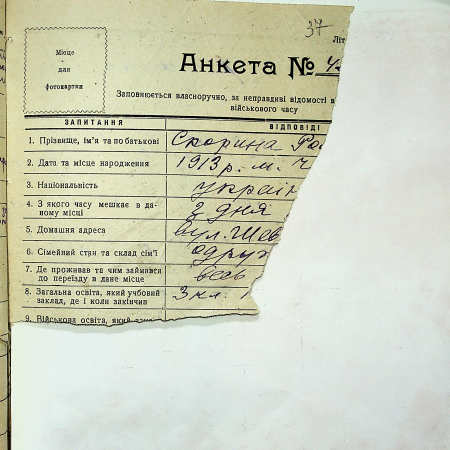 37
Літ
Місце
для
фотокартки
Анкета № 4
Заповнюється власноручно, за неправдиві відомості в
військового часу
ЗАПИТАННЯ ВІДПОВІДІ
1. Прізвище, ім'я та по батькові Скорина Ро
2. Дата та місце народження 1913 р. м. Ч
3. Національність україн
4. З якого часу мешкає в да-
ному місці 2 дня
5. Домашня адреса вул. Шев
6. Сімейний стан та склад сім'ї одруж
7. Де проживав та чим займався
до переїзду в дане місце весь
8. Загальна освіта, який учбовий
заклад, де і коли закінчив 3 кл.
9. Військова освіта, який